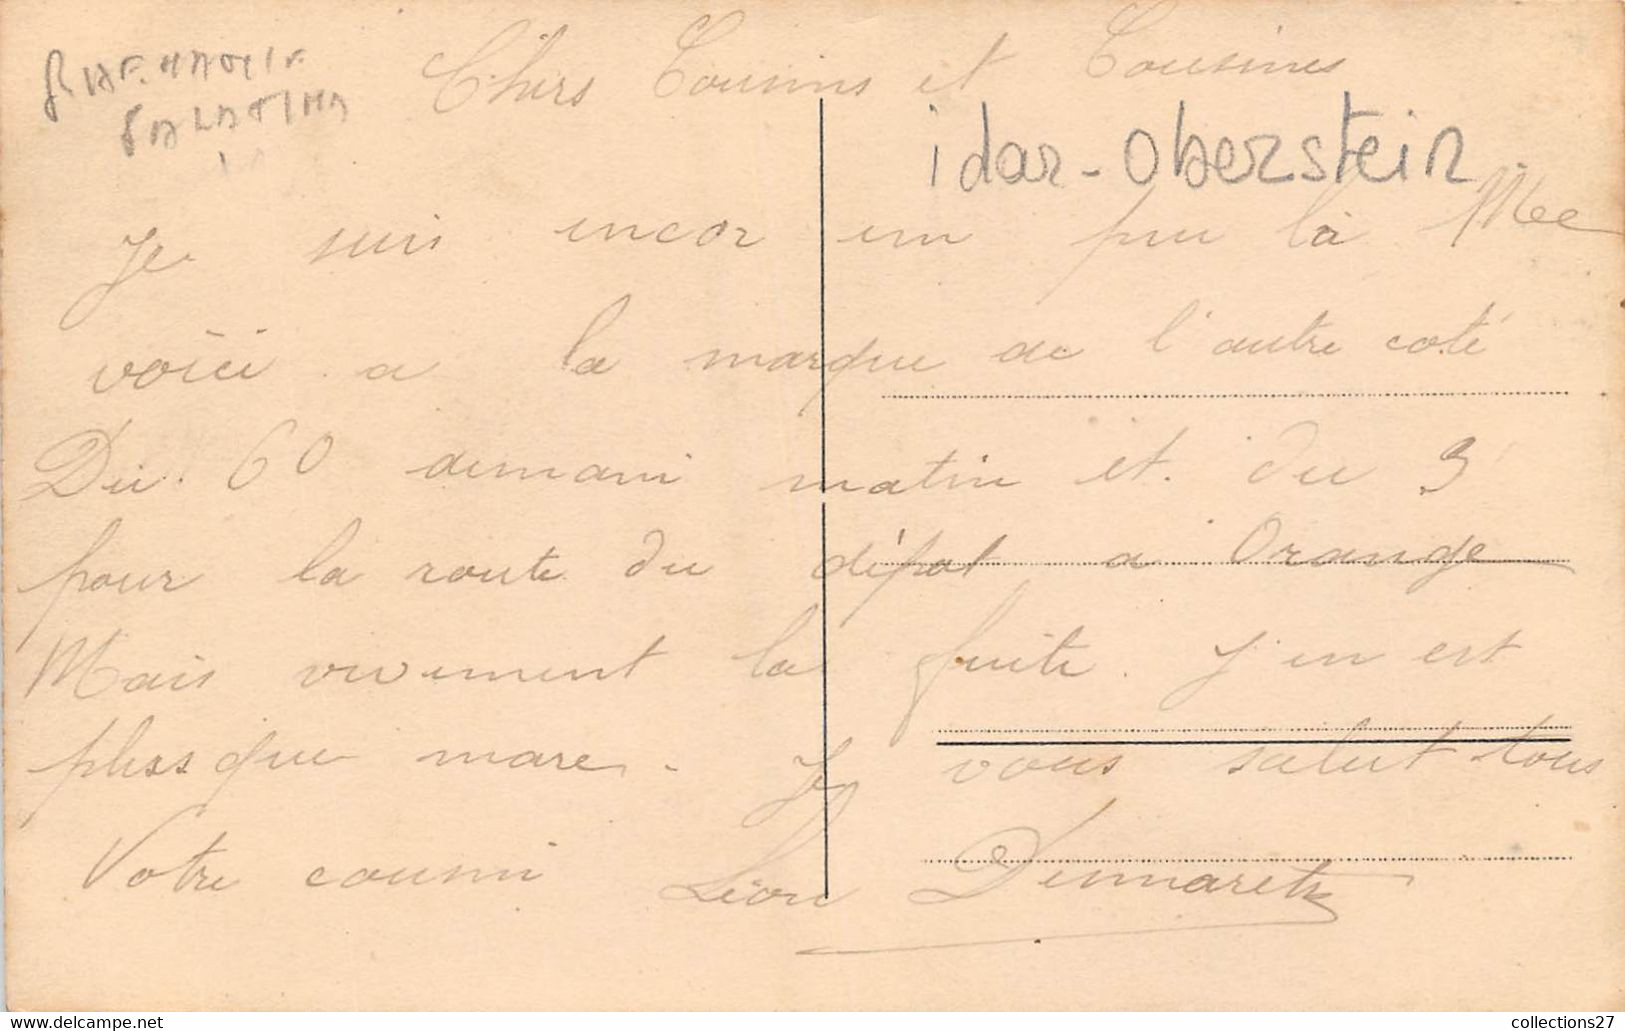 RHENANIE
PALATINA
Chers Cousins et Cousines
idar-Oberstein
Je suis encor un peu là Mee
voici a la marque de l'autre coté
Du 60 demani matin et du 3
pour la route du dépot a Orange
Mais vivement la fuite. J'en est
pluss que mare. Je vous salut tous
Votre cousin Léon Demaretz
collections27